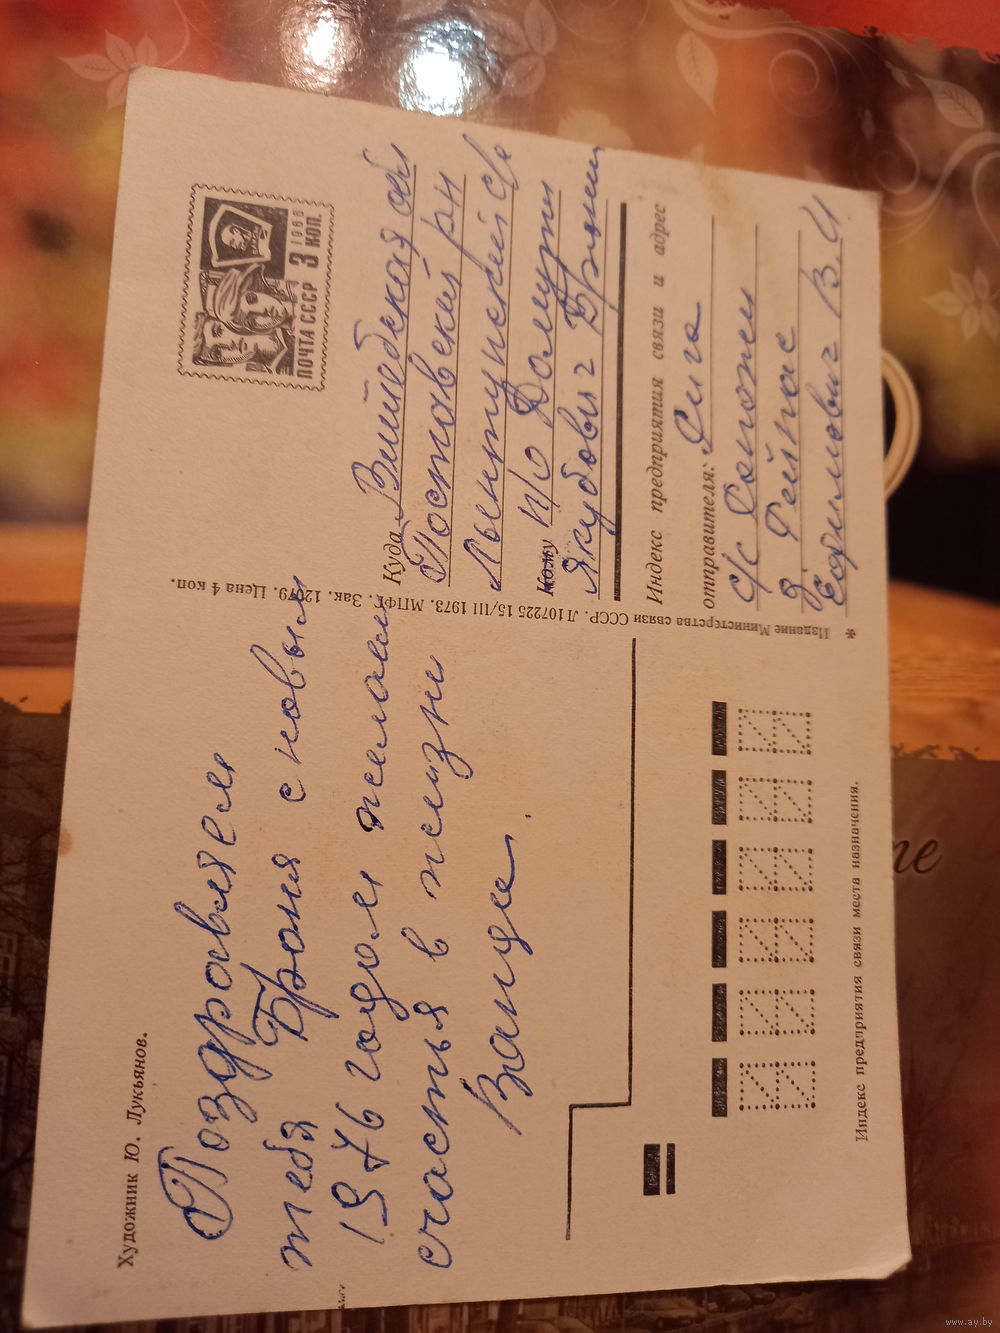 Художник Ю. Лукьянов.
Поздравляем
тебя Броня с новым
1976 годом желаем
счастья в жизни
Ванда.
ПОЧТА СССР 3 КОП.
1968
Куда Витебская обл
Поставский рн
Лынтупский с/с
Кому п/о Долути
Якубович Броня
Индекс предприятия связи и адрес
отправителя:
с/с
д
Ебилович В. И.
Издание Министерства связи СССР. Л 107225 15/III 1973. МПФГ. Зак. 12079. Цена 4 коп.
Индекс предприятия связи места назначения.
www.ay.by